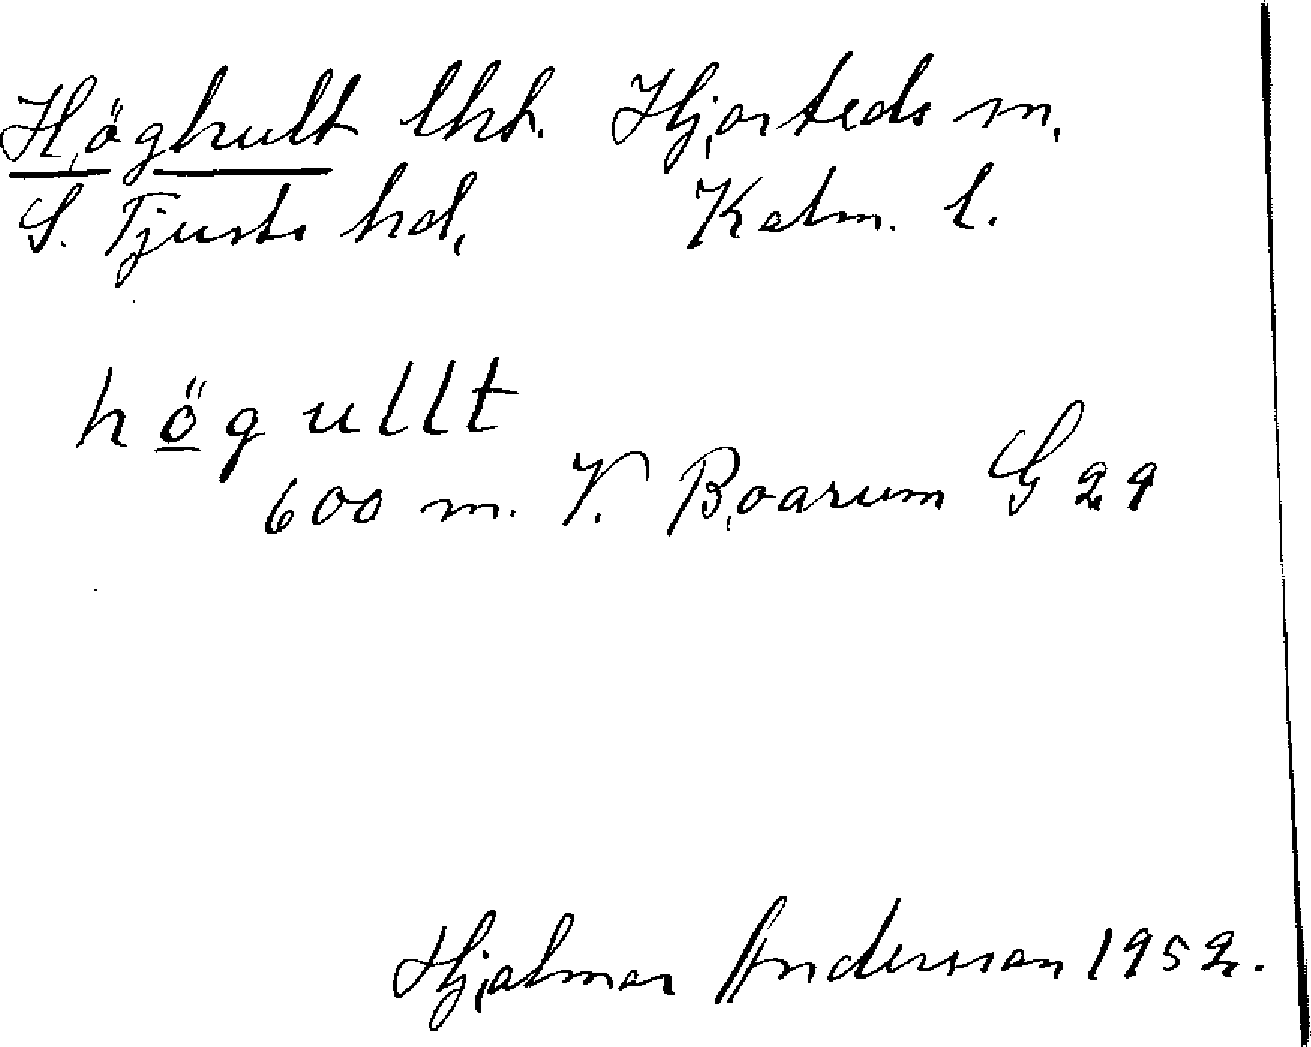 Höghult lht. Hjorteds sn.
S. Tjusts hd. Kalm. l.
högullt
600 m. V. Boarum G 29
Hjalmar Andersson 1952.